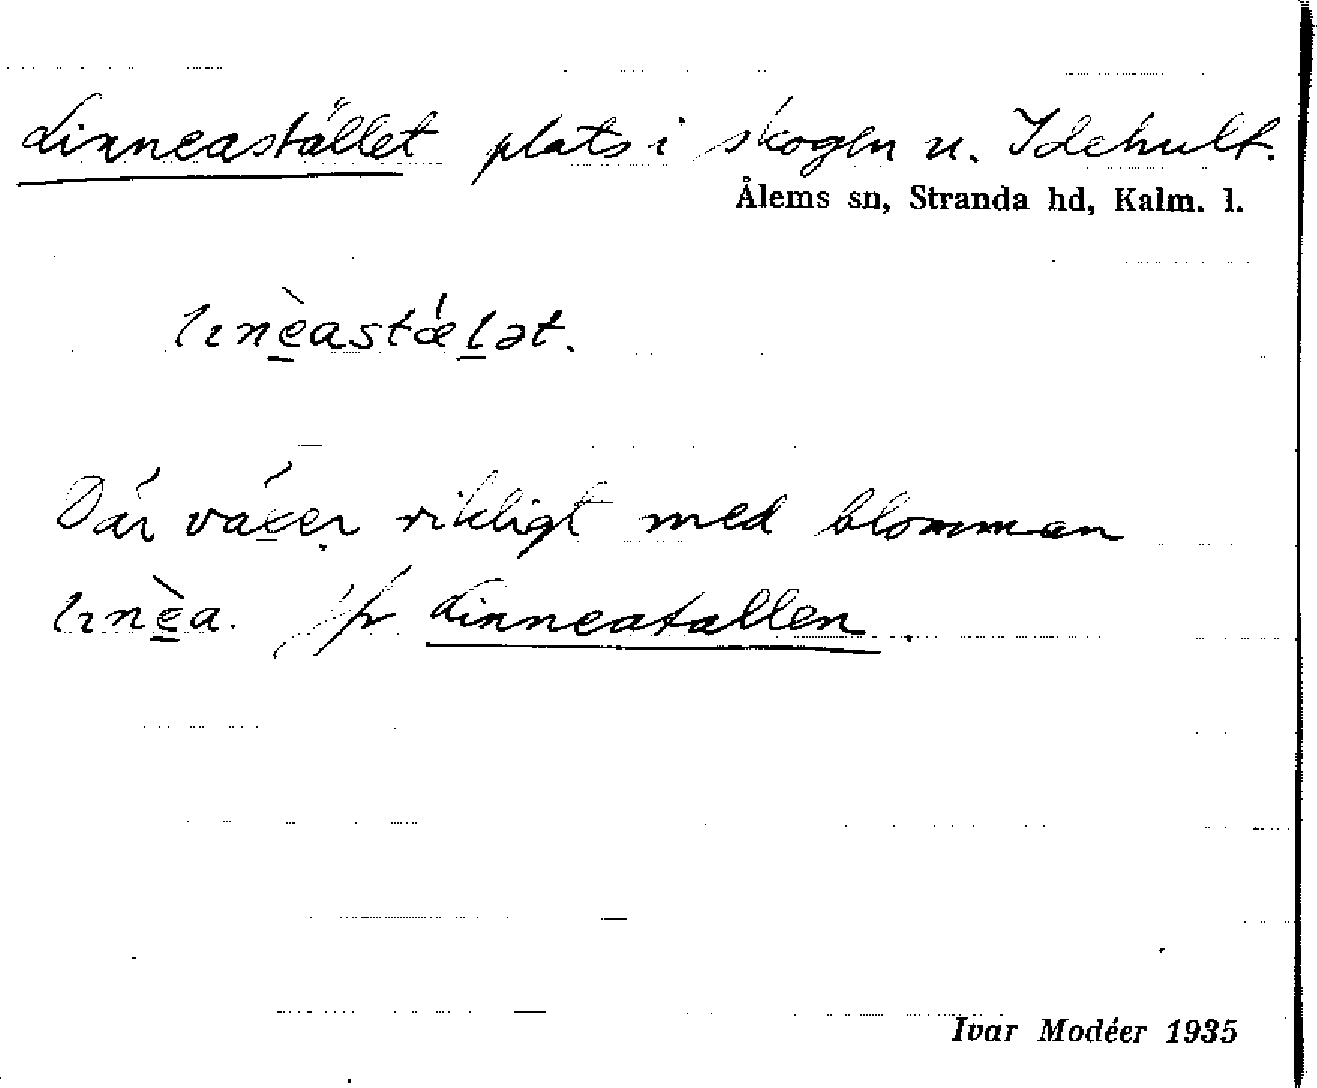 Linneastället plats i skogen u. Idehult.
Ålems sn, Stranda hd, Kalm. l.
lınèastǽlət.
Där växer rikligt med blomman
lınèa. Jfr Linneatallen.
Ivar Modéer 1935